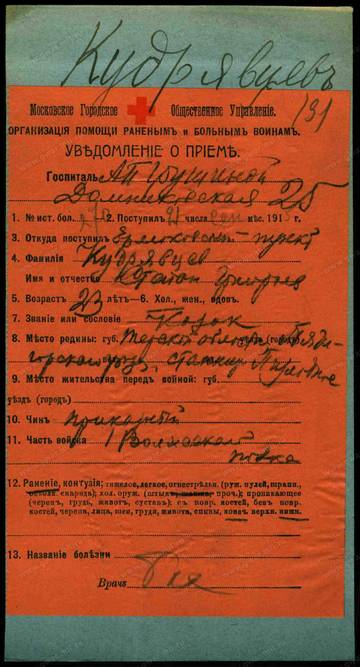 Кудрявцевъ
191
Московское Городское Общественное Управленіе.
ОРГАНИЗАЦІЯ ПОМОЩИ РАНЕНЫМЪ и БОЛЬНЫМЪ ВОИНАМЪ.
УВѢДОМЛЕНІЕ О ПРІЕМѢ.
Госпиталь
Домниковская 25
1. № ист. бол. 2. Поступилъ числа мѣс. 1915 г.
3. Откуда поступилъ Ермаковскій пунктъ
4. Фамилія Кудрявцев
Имя и отчество Григорьев
5. Возрастъ 23 лѣтъ—6. Хол., жен., вдов.
7. Званіе или сословіе Козак
8. Мѣсто родины: губ. Терской области у. (городъ) Пяти-
горскаго станица
9. Мѣсто жительства передъ войной: губ.
уѣздъ (городъ)
10. Чинъ приказный
11. Часть войска 1 Волжской
полка
12. Раненіе, контузія: тяжелое, легкое, огнестрѣльн. (руж. пулей, шрапн.,
осколк. снаряда); хол. оруж. (штык. проч.); проникающее
(черепъ, грудь, животъ, суставъ); съ повр. костей, безъ повр.
костей, черепа, лица, шеи, груди, живота, спины, конеч. верхн. нижн.
13. Названіе болѣзни
Врачъ